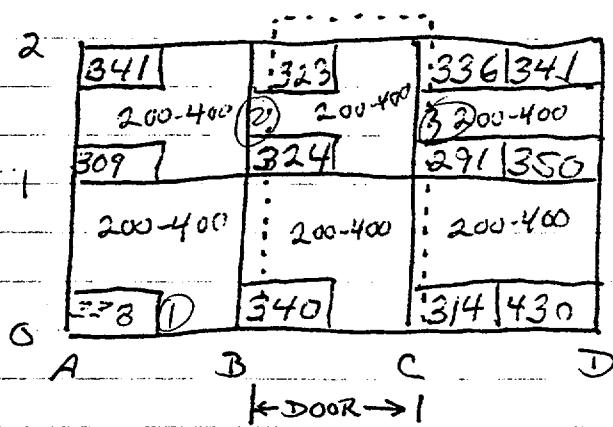 2
341 323 336 341
200-400 2 200-400 3 200-400
309 324 291 350
1
200-400 200-400 200-400
1 340 314 430
0
A B C D
DOOR